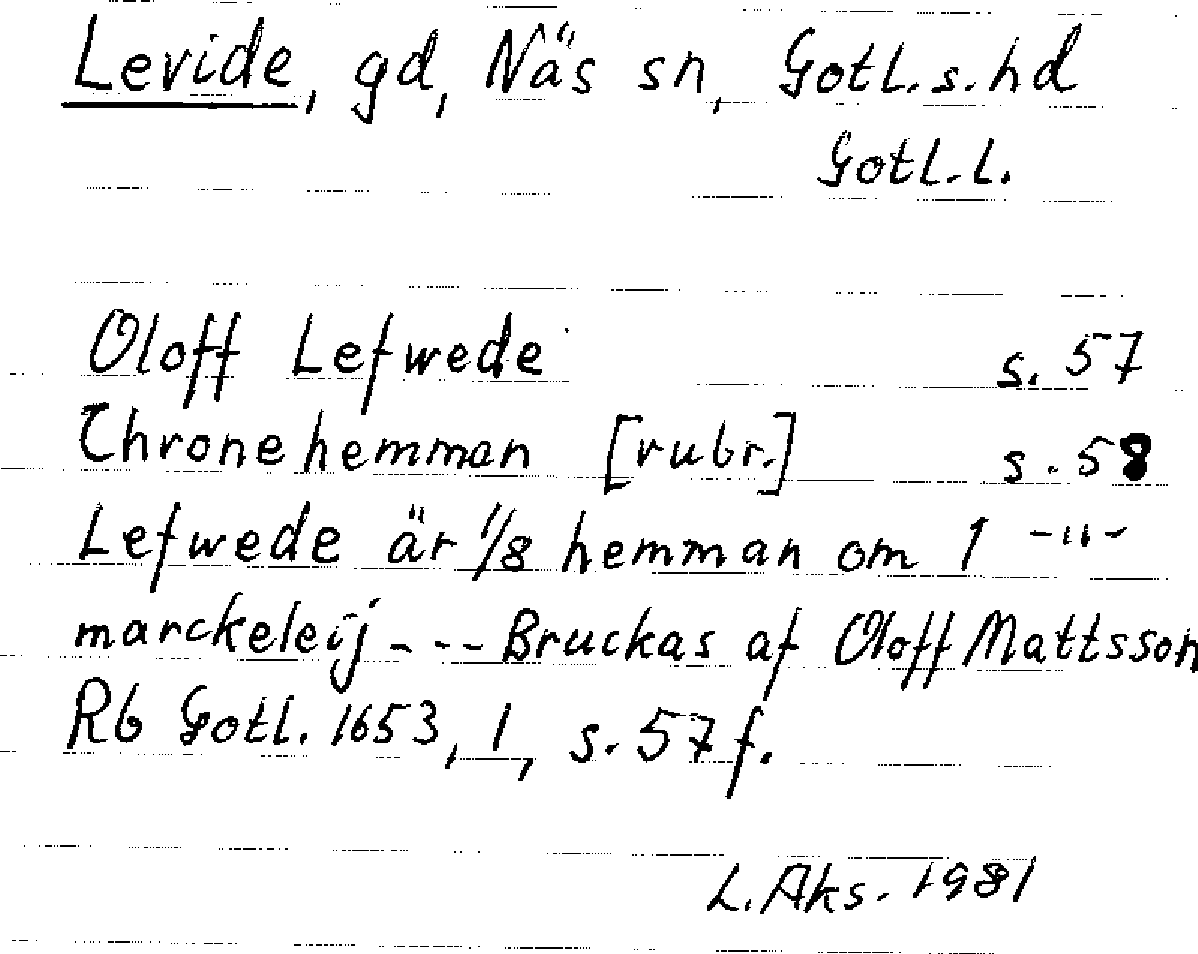 Levide, gd, Näs sn, Gotl. s. hd
Gotl. l.
Oloff Lefwede s. 57
Chronehemman [rubr.] s. 58
Lefwede är 1/8 hemman om 1 -"-
marckeleij --- Bruckas af Oloff Mattsson
Rb Gotl. 1653, 1, s. 57 f.
L. Aks. 1981